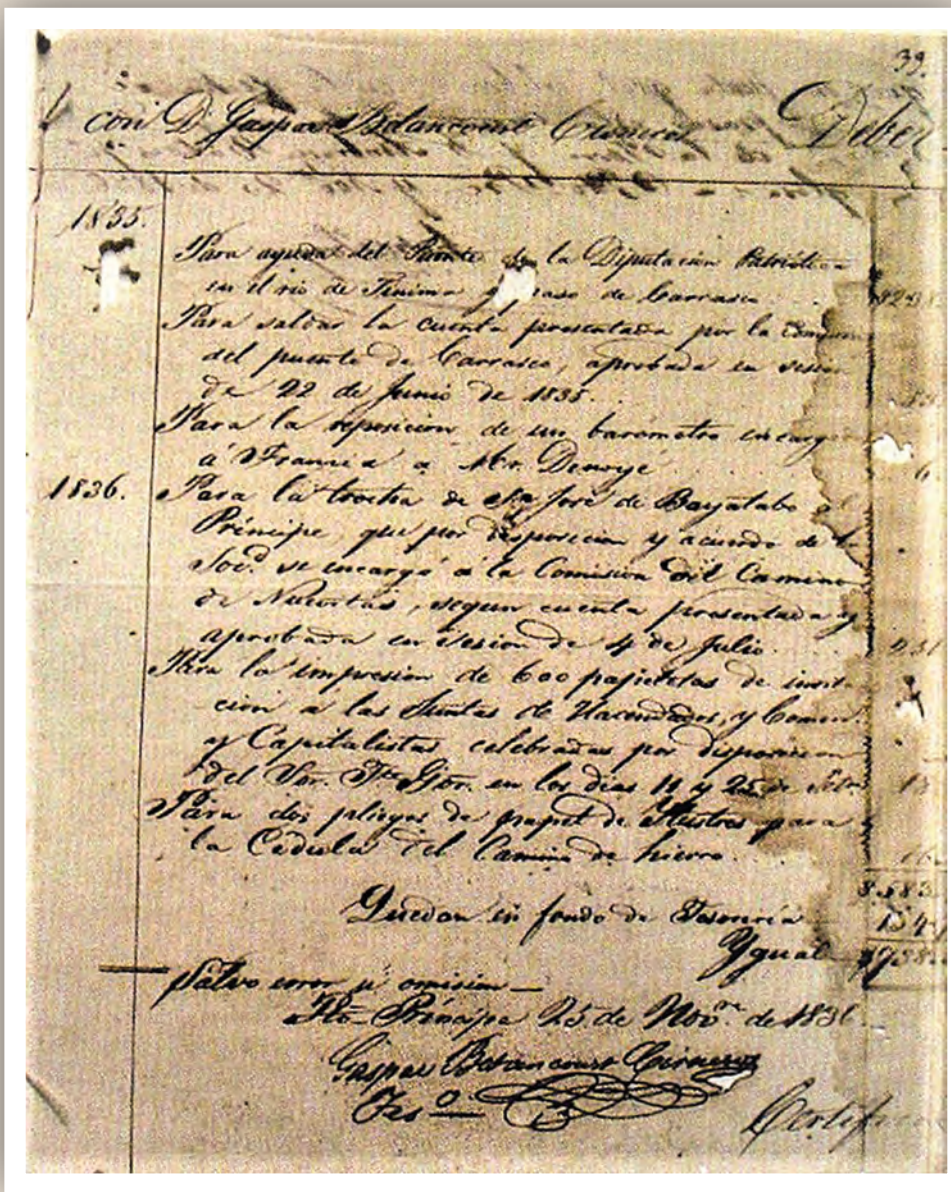 39.
con D. Gaspar Betancourt Cisneros Deber
1835.
Para ayuda del Puente de la Diputacion Patriótica
en el rio de Tinima y paso de Carrasco
Para saldar la cuenta presentada por la
del puente de Carrasco, aprobada en sesion
de 22 de Junio de 1835.
Para la reposicion de un barometro encarg
á Francia a Mr.
1836.
Para la trocha de Sn José de Bayatabo al
Príncipe, que por disposicion y acuerdo de la
Socd. se encargó á la Comision del Camino
de Nuevitas, segun cuenta presentada y
aprobada en sesion de 4 de Julio.
Para la impresion de 600 papeletas de invit-
cion á las Juntas de Hacendados, y Comer.
y Capitalistas celebradas por disposicion
del Sor. Tte. Gor. en los dias 11 y 25 de
Para dos pliegos de papel de Ilustres para
la Cedula del Camino de hierro.
8.583
Quedan en fondo de Tesoreria 154
Ygual
Salvo error u omision—
Pto. Príncipe 25 de Nove. de 1836.
Gaspar Betancourt Cisneros
Teso.
Certif